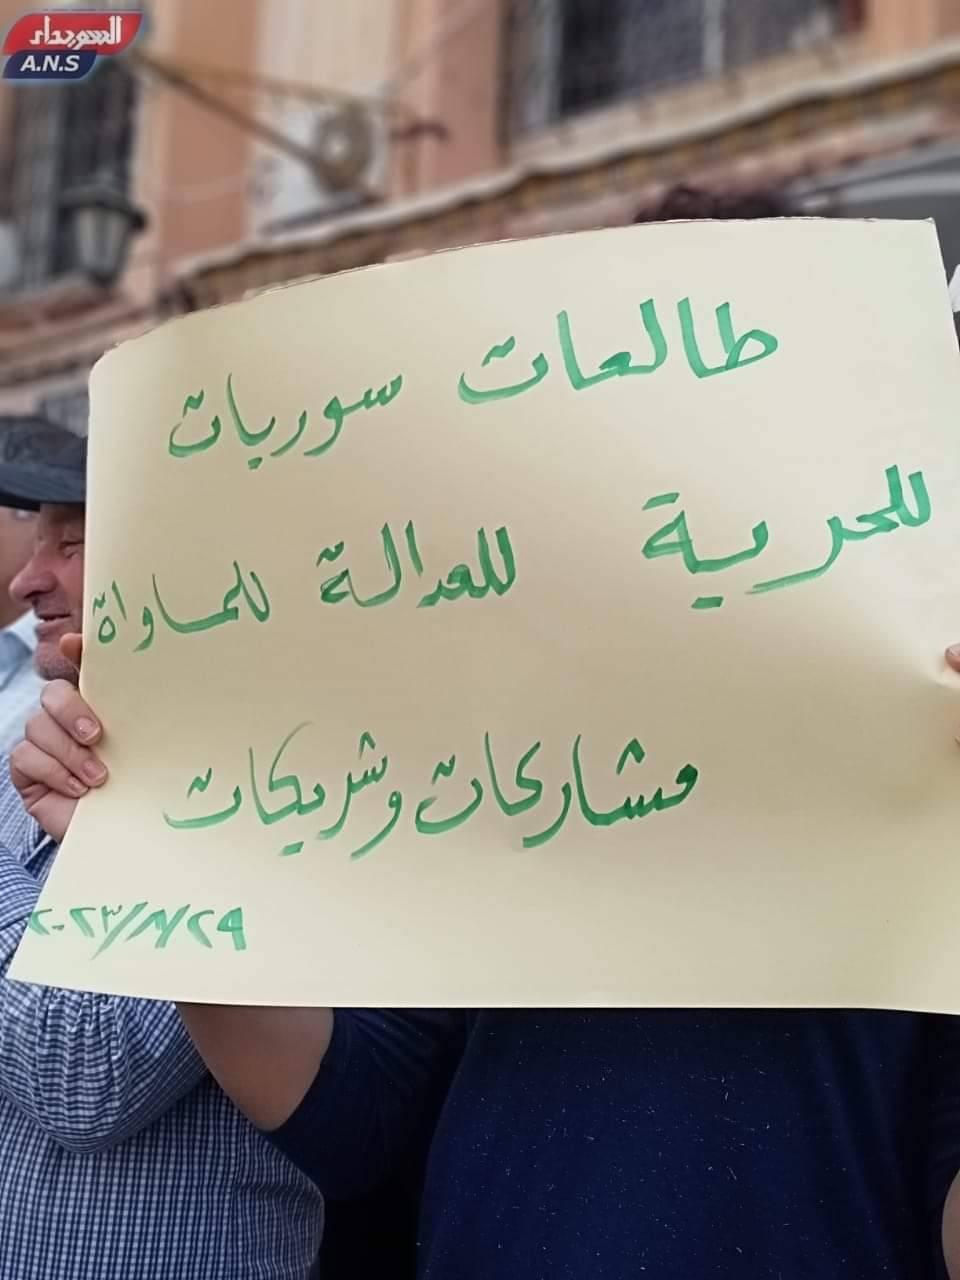 السويداء
A.N.S
طالعات سوريات
للحرية للعدالة للمساواة
مشاركات وشريكات
٢٠٢٣/٨/٢٩